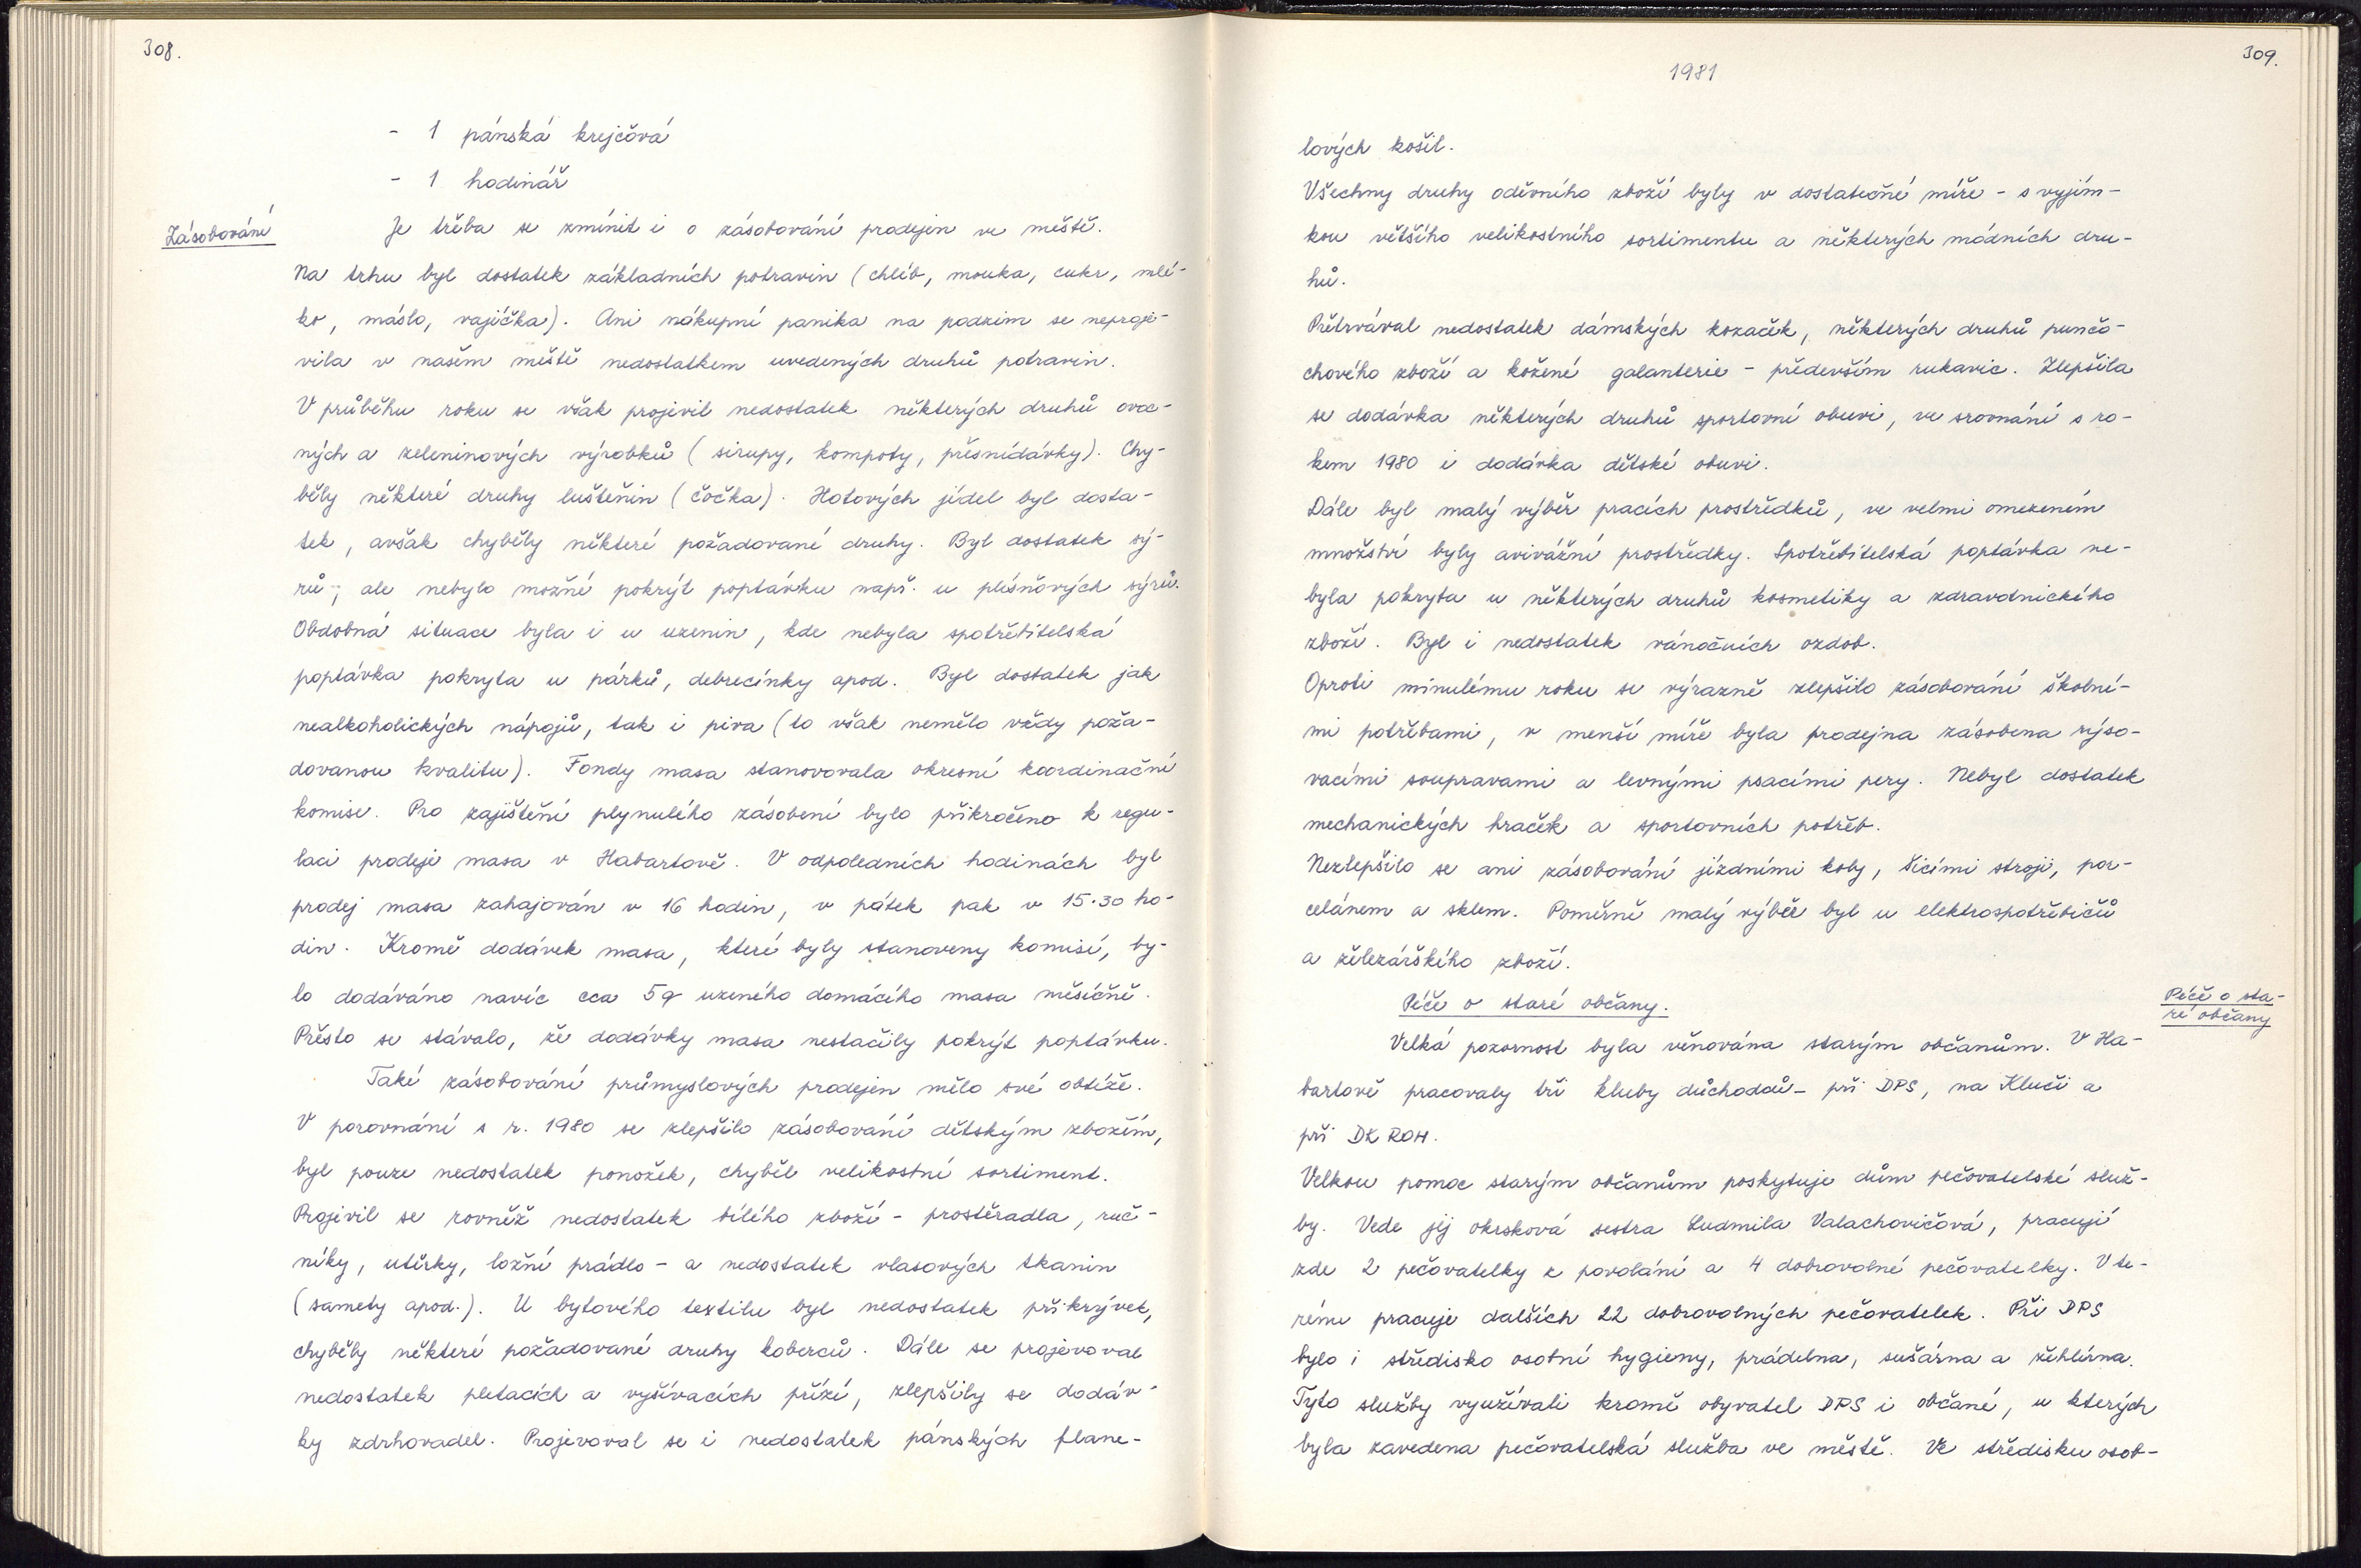 308.
- 1 pánská krejčová
- 1 hodinář
Zásobování
Je třeba se zmínit i o zásobování prodejen ve městě.
Na trhu byl dostatek základních potravin (chléb, mouka, cukr, mlé-
ko, máslo, vajíčka). Ani nákupní panika na podzim se neproje-
vila v našem městě nedostatkem uvedených druhů potravin.
V průběhu roku se však projevil nedostatek některých druhů ovoc-
ných a zeleninových výrobků (sirupy, kompoty, přesnídávky). Chy-
běly některé druhy luštěnin (čočka). Hotových jídel byl dosta-
tek, avšak chyběly některé požadované druhy. Byl dostatek sý-
rů, ale nebylo možné pokrýt poptávku např. u plísňových sýrů.
Obdobná situace byla i u uzenin, kde nebyla spotřebitelská
poptávka pokryta u párků, debrecínky apod. Byl dostatek jak
nealkoholických nápojů, tak i piva (to však nemělo vždy poža-
dovanou kvalitu). Fondy masa stanovovala okresní koordinační
komise. Pro zajištění plynulého zásobení bylo přikročeno k regu-
laci prodeje masa v Habartově. V odpoledních hodinách byl
prodej masa zahajován v 16 hodin, v pátek pak v 15.30 ho-
din. Kromě dodávek masa, které byly stanoveny komisí, by-
lo dodáváno navíc cca 5q uzeného domácího masa měsíčně.
Přesto se stávalo, že dodávky masa nestačily pokrýt poptávku.
Také zásobování průmyslových prodejen mělo své obtíže.
V porovnání s r. 1980 se zlepšilo zásobování dětským zbožím,
byl pouze nedostatek ponožek, chyběl velikostní sortiment.
Projevil se rovněž nedostatek bílého zboží - prostěradla, ruč-
níky, utěrky, ložní prádlo - a nedostatek vlasových tkanin
(samety apod.). U bytového textilu byl nedostatek přikrývek,
chyběly některé požadované druhy koberců. Dále se projevoval
nedostatek pletacích a vyšívacích přízí, zlepšily se dodáv-
ky zdrhovadel. Projevoval se i nedostatek pánských flane-
309.
1981
lových košil.
Všechny druhy oděvního zboží byly v dostatečné míře - s vyjím-
kou většího velikostního sortimentu a některých módních dru-
hů.
Přetrvával nedostatek dámských kozaček, některých druhů punčo-
chového zboží a kožené galanterie - především rukavic. Zlepšila
se dodávka některých druhů sportovní obuvi, ve srovnání s ro-
kem 1980 i dodávka dětské obuvi.
Dále byl malý výběr pracích prostředků, ve velmi omezeném
množství byly avivážní prostředky. Spotřebitelská poptávka ne-
byla pokryta u některých druhů kosmetiky a zdravotnického
zboží. Byl i nedostatek vánočních ozdob.
Oproti minulému roku se výrazně zlepšilo zásobování školní-
mi potřebami, v menší míře byla prodejna zásobena rýso-
vacími soupravami a levnými psacími pery. Nebyl dostatek
mechanických hraček a sportovních potřeb.
Nezlepšilo se ani zásobování jízdními koly, šicími stroji, por-
celánem a sklem. Poměrně malý výběr byl u elektrospotřebičů
a železářského zboží.
Péče o staré občany.
Péče o sta-
ré občany
Velká pozornost byla věnována starým občanům. V Ha-
bartově pracovaly tři kluby důchodců - při DPS, na Kluči a
při DK ROH.
Velkou pomoc starým občanům poskytuje dům pečovatelské služ-
by. Vede jej okrsková sestra Ludmila Valachovičová, pracují
zde 2 pečovatelky z povolání a 4 dobrovolné pečovatelky. V te-
rénu pracuje dalších 22 dobrovolných pečovatelek. Při DPS
bylo i středisko osobní hygieny, prádelna, sušárna a žehlírna.
Tyto služby využívali kromě obyvatel DPS i občané, u kterých
byla zavedena pečovatelská služba ve městě. Ve středisku osob-